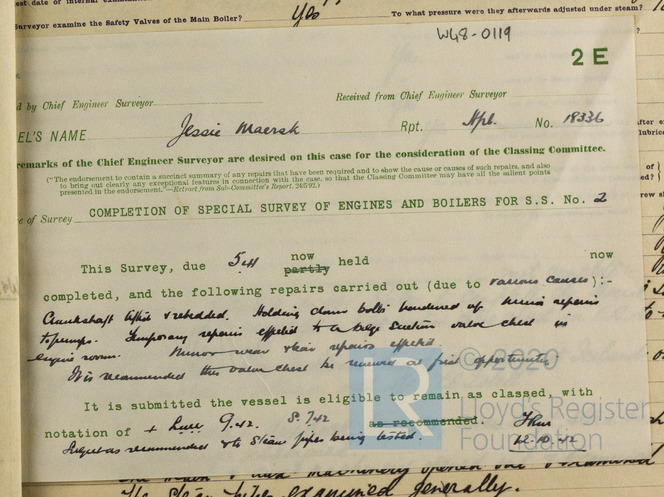 Surveyor examine the Safety Valves of the Main Boiler? Yes To what pressure were they afterwards adjusted under steam?
W48-0119
2 E
d by Chief Engineer Surveyor Received from Chief Engineer Surveyor
EL'S NAME Jessie Maersk Rpt. Npl. No. 18336
remarks of the Chief Engineer Surveyor are desired on this case for the consideration of the Classing Committee.
("The endorsement to contain a succinct summary of any repairs that have been required and to show the cause or causes of such repairs, and also
to bring out clearly any exceptional features in connection with the case, so that the Classing Committee may have all the salient points
presented in the endorsement."—Extract from Sub-Committee's Report, 24/5/92.)
e of Survey COMPLETION OF SPECIAL SURVEY OF ENGINES AND BOILERS FOR S.S. No. 2
This Survey, due 5.41 now partly held now
completed, and the following repairs carried out (due to various causes):-
Crankshaft lifted & rebedded. Holding down bolts hardened up. Minor repairs
to pumps. Temporary repairs effected to a large suction valve chest in
engine room. Minor wear & tear repairs effected.
It is recommended this valve chest be renewed at first opportunity
© 2020
LR
Lloyd's Register
Foundation
It is submitted the vessel is eligible to remain as classed, with
notation of + LMC 9.42. S. 7.42 as recommended.
Subject as recommended & to Steam pipes being tested. 12.10.42
examined generally.